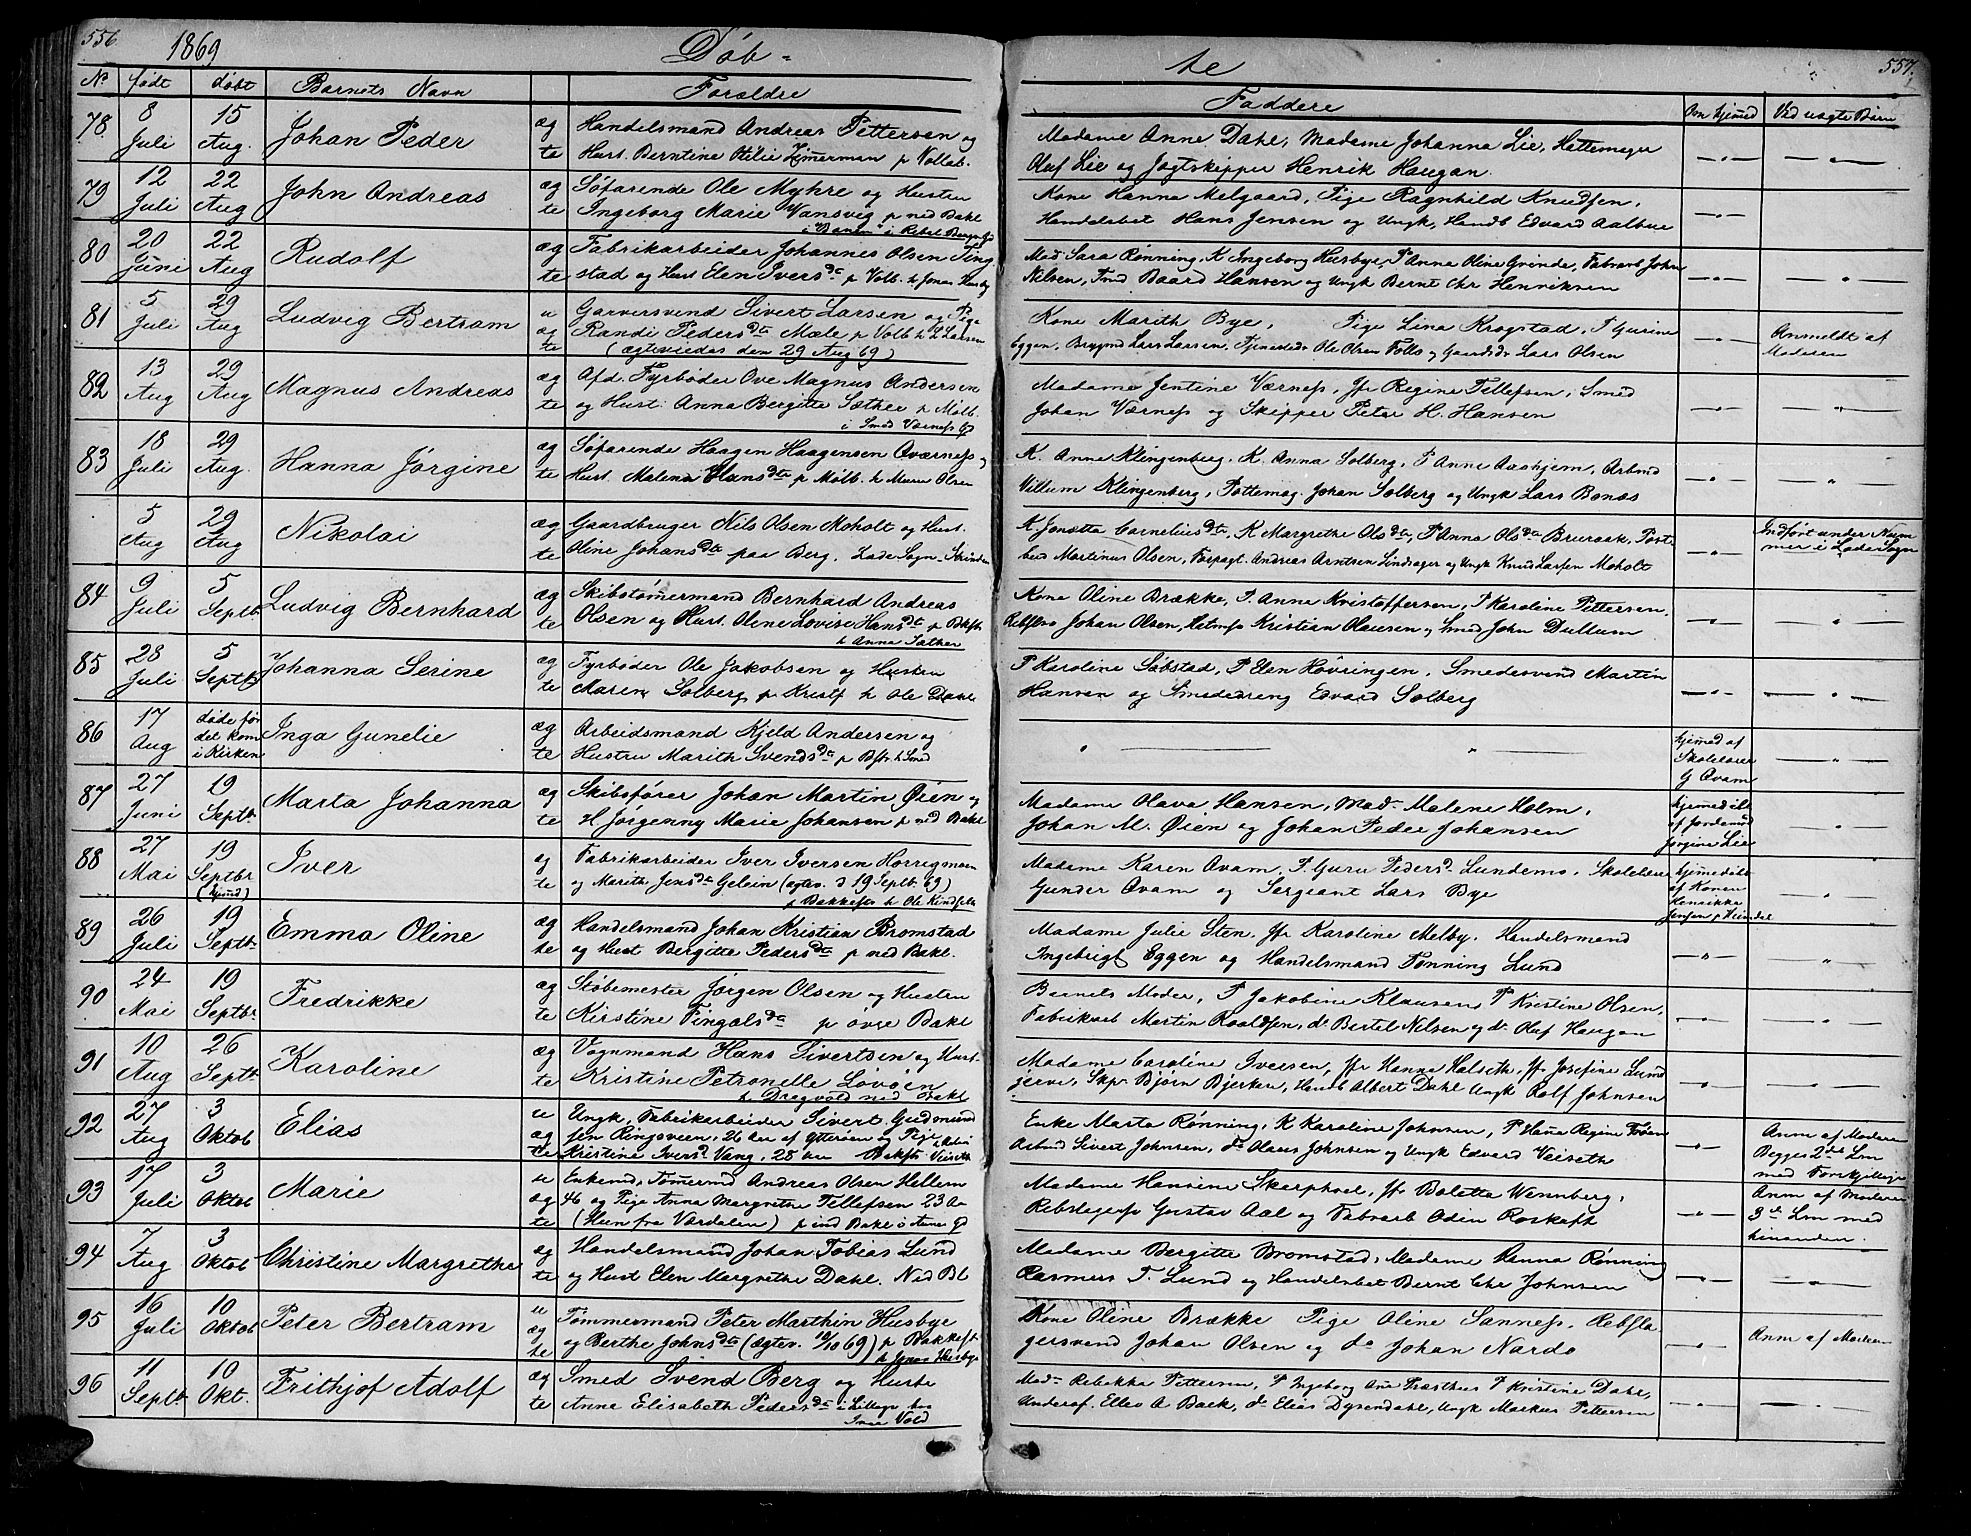 556
1869
Døb-
te
557.
No født døbt Barnets Navn Forældre Faddere Om hjemmed Ved uægte Børn
78 8 Juli 15 Aug. Johan Peder ægte Handelsmand Andreas Pettersen og
Hust. Berntine Otilie Zimerman p Vollab.
Madame Anne Dahl, Madame Johanna Lie, Hattemager
Oluf Lie og Jagtskipper Henrik Haugan.
79 12 Juli 22 Aug John Andreas ægte Søfarende Ole Myhre og Husten
Ingeborg Marie Vansvig p ned Bakl
Kone Hanna Melgaard, Pige Ragnhild Knudsen,
Handelsbet Hans Jensen og Ungk, Handb Edvard Aalbue
80 20 Juni 22 Aug Rudolf ægte Fabrikarbeider Johannes Olsen Ting
stad og Hust Elen Ivers dtr p Volb. h Jonas Husby
Mad Sara Rønning, K Ingeborg Husbye, P Anna Oline Grinde, Fabrarb John
Nilsen, Smd Baard Hansen og Ungk Bernt Chr Henriksen
81 5 Juli 29 Aug Ludvig Bertram uægte Garversvend Sivert Larsen og Pige
Randi Peders dtr Mæle p Volb h L Larsen
(ægteviedes den 29 Aug 69)
Kone Marith Bye, Pige Lina Krogstad, P Gurine
Eggen, Brygmd Lars Larsen, Tjenestedr Ole Olsen Folls og Gaardsdr Lars Olsen
Anmeldt af
Moderen
82 13 Aug 29 Aug Magnus Andreas ægte Afd. Fyrbøder Ove Magnus Andersen
og Hust. Anna Bergitte Sæther p Mølb.
i Smed Værnes Gd
Madame Jentine Værness, Jfr Regine Tellefsen, Smed
Johan Værness og Skipper Peter H. Hansen
83 18 Juli 29 Aug. Hanna Jørgine ægte Søfarende Haagen Haagensen Qvarness og
Hust. Malena Hans dtr p Mølb. h Murm Olsen
K. Anne Klingenberg, K. Anna Solberg, P Anne Aashjem, Arbmd
Villum Klingenberg, Pottemag. Johan Solberg og Ungk Lars Bonaas
5 Aug 29 Aug Nikolai ægte Gaardbruger Nils Olsen Moholt og Hust.
Oline Johans dtr paa Berg, Lade Sogn, Strinden
K. Jonetta Cornelius dtr, K Margrethe Ols dtr, P Anna Ols dtr Bruraak, Post
bud Martinus Olsen, Forpagt. Andreas Arntsen Lindsager og Ungk Knud Larsen Moholt
Indført under Num
mer i Lade Sogn
84 9 Juli 5 Septb. Ludvig Bernhard ægte Skibstømermand Bernhard Andreas
Olsen og Hust. Oline Lovise Hans dtr p Bakft
h Anna Sæther
Kone Oline Brække, P. Anna Kristoffersen, P Karoline Pettersen,
Rebslsv Johan Olsen, Kristian Olausen og Smed John Dullum
85 28 Juli 5 Septb Johanna Serine ægte Fyrbøder Ole Jakobsen og Husten
Maren Solberg p Kristf h Ole Dahl
P Karoline Søbstad, P Elen Høvringen, Smedesvend Martin
Hansen og Smededreng Edvard Solberg
86 17 Aug døde før
det kom
i Kirken Inga Gunelie ægte Arbeidsmand Kjeld Andersen og
Hustru Marith Svends dtr p Bkftr h Smed
hjemmed af
Skolelærer
G Qvam
87 27 Juni 19 Septb. Marta Johanna ægte Skibsfører Johan Martin Øien og
H. Jørgenny Maria Johansen p ned Bakl
Madame Olava Hansen, Mad. Malene Holm,
Johan M. Øien og Johan Peder Johansen
hjemmedøbt
af Jordemod
Jørgine Lie
88 27 Mai 19 Septbr (hjmd) Iver ægte Fabrikarbeider Iver Iversen Horrigmoen
og Marith Jens dtr Gelein (ægtev. d 19 Septb. 69)
p Bakkeftr h Ole Kindseth
Madame Karen Qvam, P. Guru Peders d. Lundemo, Skolelærer
Gunder Qvam og Sergeant Lars Bye
hjemmedøbt
af Konen
Henrikke
Jensen p Rindal
89 26 Juli 19 Septb. Emma Oline ægte Handelsmand Johan Kristian Bromstad
og Hust Bergitte Peders dtr p ned Bakl.
Madame Julie Sten, Jfr Karoline Melby, Handelsmand
Ingebrigt Eggen og Handelsmand Tønning Lund
90 24 Mai 19 Septbr Fredrikke ægte Støbemester Jørgen Olsen og Husten
Kirstine Fingals dtr p øvre Bakl
Barnets Moder, P Jakobine Klausen, P Kristine Olsen,
Fabrikarb Martin Roaldsen, do Bertel Nilsen og do Oluf Haugan
91 10 Aug 26 Septb. Karoline ægte Vognmand Hans Sivertsen og Hust.
Kristine Petronelle Løvøen
h Dragvold ned Bakl
Madame Caroline Iversen, Jfr Hanna Halseth, Jfr Josefine Lund
gjerne, Skpr Bjørn Bjerken, Handb Albert Dahl Ungk Rolf Johnsen
92 27 Aug 3 Oktob Elias uægte Ungk, Fabrikarbeider Sivert Gudmund
sen Ringsveen, 26 Aar af Ytterøen og Pige
Kristine Ivers d Vang, 25 Aar Bakft. Veiseth
Enke Marta Rønning, K Karoline Johnsen, P Hana Regine Troen
Arbmd Sivert Johnsen, do Olaus Johnsen og Ungk Edvard Veiseth
Anm af Moderen
Begges 2det Lm
med Forskjellige
93 17 Juli 3 Oktob Marie uægte Enkemd, Tømermd Andreas Olsen Hellem
46 og Pige Anna Margrethe Tellefsen 23 Aar
(Hun fra Værdalen) p ind Bakl
Madame Hansine Skerphoel, Jfr Bolette Wennberg,
Rebslagersv Gustav Aal og Fabrarb Odin Roskaft
Anm af Moderen
3d Lm med
hinanden.
94 7 Aug 3 Oktob Christine Margrethe ægte Handelsmand Johan Tobias Lund
og Hust Elen Margrethe Dahl. Ned Bl
Madame Bergitte Bromstad, Madame Hanna Rønning
Rasmus T. Lund og Handelsbet Bernt Chr Johnsen
95 16 Juli 10 Oktob Peter Bertram uægte Tømmermand Peter Marthin Husbye
og Berthe Johns dtr (ægtev. 10/10 69) p Bakkeft
h Jonas Husbye
Kone Oline Brække Pige Oline Sanness, Rebsla
gersvend Johan Olsen og do Johan Nardo
Anm af Moderen
96 11 Septb. 10 Okt. Frithjof Adolf ægte Smed Svend Berg og Hustr
Anne Elisabeth Peders dtr i Lillegr hos
Vold
Mad. Rebekka Pettersen, P Ingeborg Ane Præsthus P Kristine Dahl,
Underof. Elles A Baek, do Elias Dyrendahl, Ungk Markus Pettersen